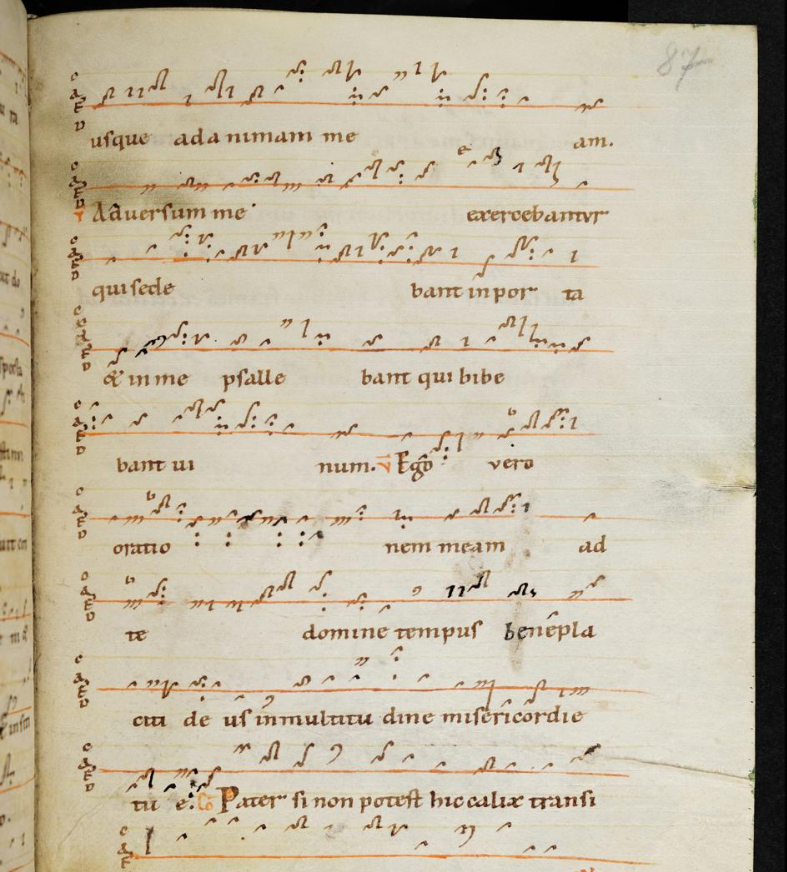 87
usque ad animam me am.
V Aduersum me exercebantur
qui sede bant in por ta
& in me psalle bant qui bibe
bant ui num. V Ego uero
oratio nem meam ad
te domine tempus benepla
citi de us in multitu dine misericordie
tu e. Co Pater si non potest hic calix transi